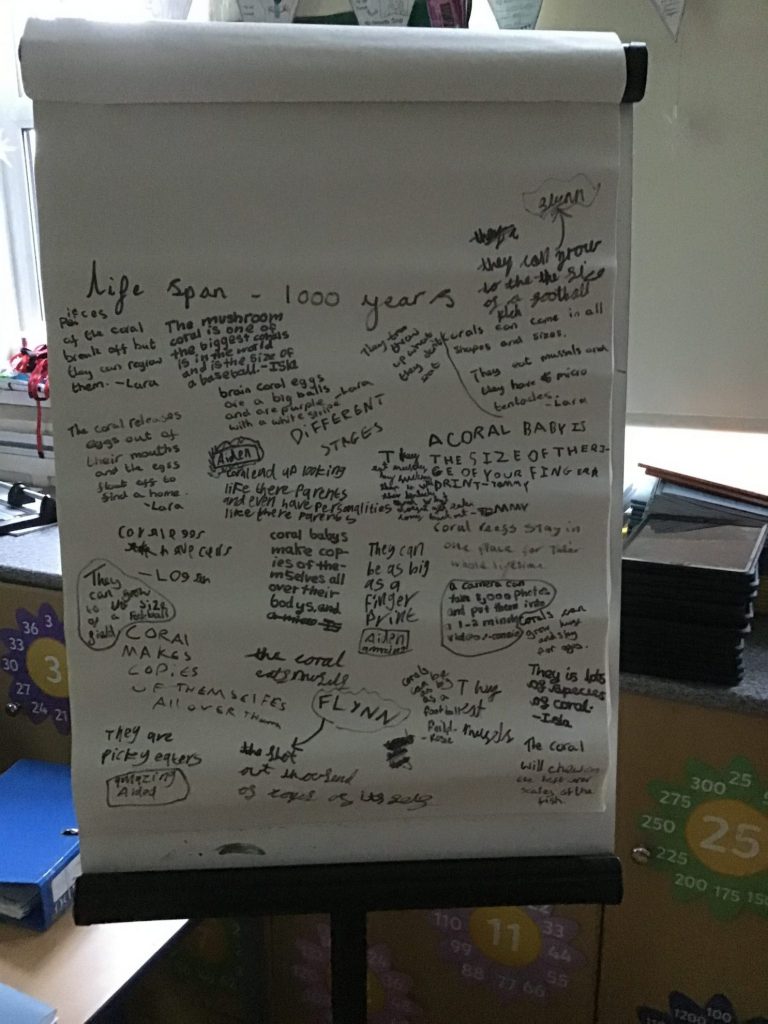 FLYNN
they call grow
to the the size
of a football
Life span - 1000 years
Pieces
of the coral
break off but
they can regrow
them. -Lara
The mushroom
coral is one of
the biggest corals
is in the world
and is the size of
a baseball. -Isla
brain coral eggs
are a big balls -Lara
and are purple
with a white stripe
They
throw
up what
they don't
eat
corals can come in all
shapes and sizes.
They eat mussals and
they have micro
tentacles. -Lara
DIFFERENT
STAGES
The coral releases
eggs out of
their mouths
and the eggs
float off to
find a home.
-Lara
Aiden
can end up looking
like there parents
and even have personalities
like there parents
A CORAL BABY IS
THE SIZE OF THE RI-
GE OF YOUR FINGER
PRINT-TOMMY
They
eat
-TOMMY
Coral reegs stay in
one place for their
whole lifetime.
coral eggs
have
-Logan
They
can grow
to the size
of a football
field
coral babys
make cop-
ies of the-
mselves all
over their
bodys, and
They can
be as big
as a
finger
print
Aiden
amazing
a camera can
take 8,000 photes
and put them into
a 1-2 minute
video
corals can
grow huge
and stay
for ages.
CORAL
MAKES
COPIES
OF THEMSELFES
ALL OVER THEM
the coral
eats musels
FLYNN
the shot
out thousend
of copes of its self
coral
can be
as a
football
feild-
Rose
They
est
musels
They is lots
of species
of coral.
-Isla
They are
picky eaters
amazing
Aided
The coral
will chew on
the
scales of the
fish.
36 3
33
30
27
24 21
3
300 25
275
250
225
200 175 150
25
110
99
88 77 66
55
44
33
22
11
1200 100